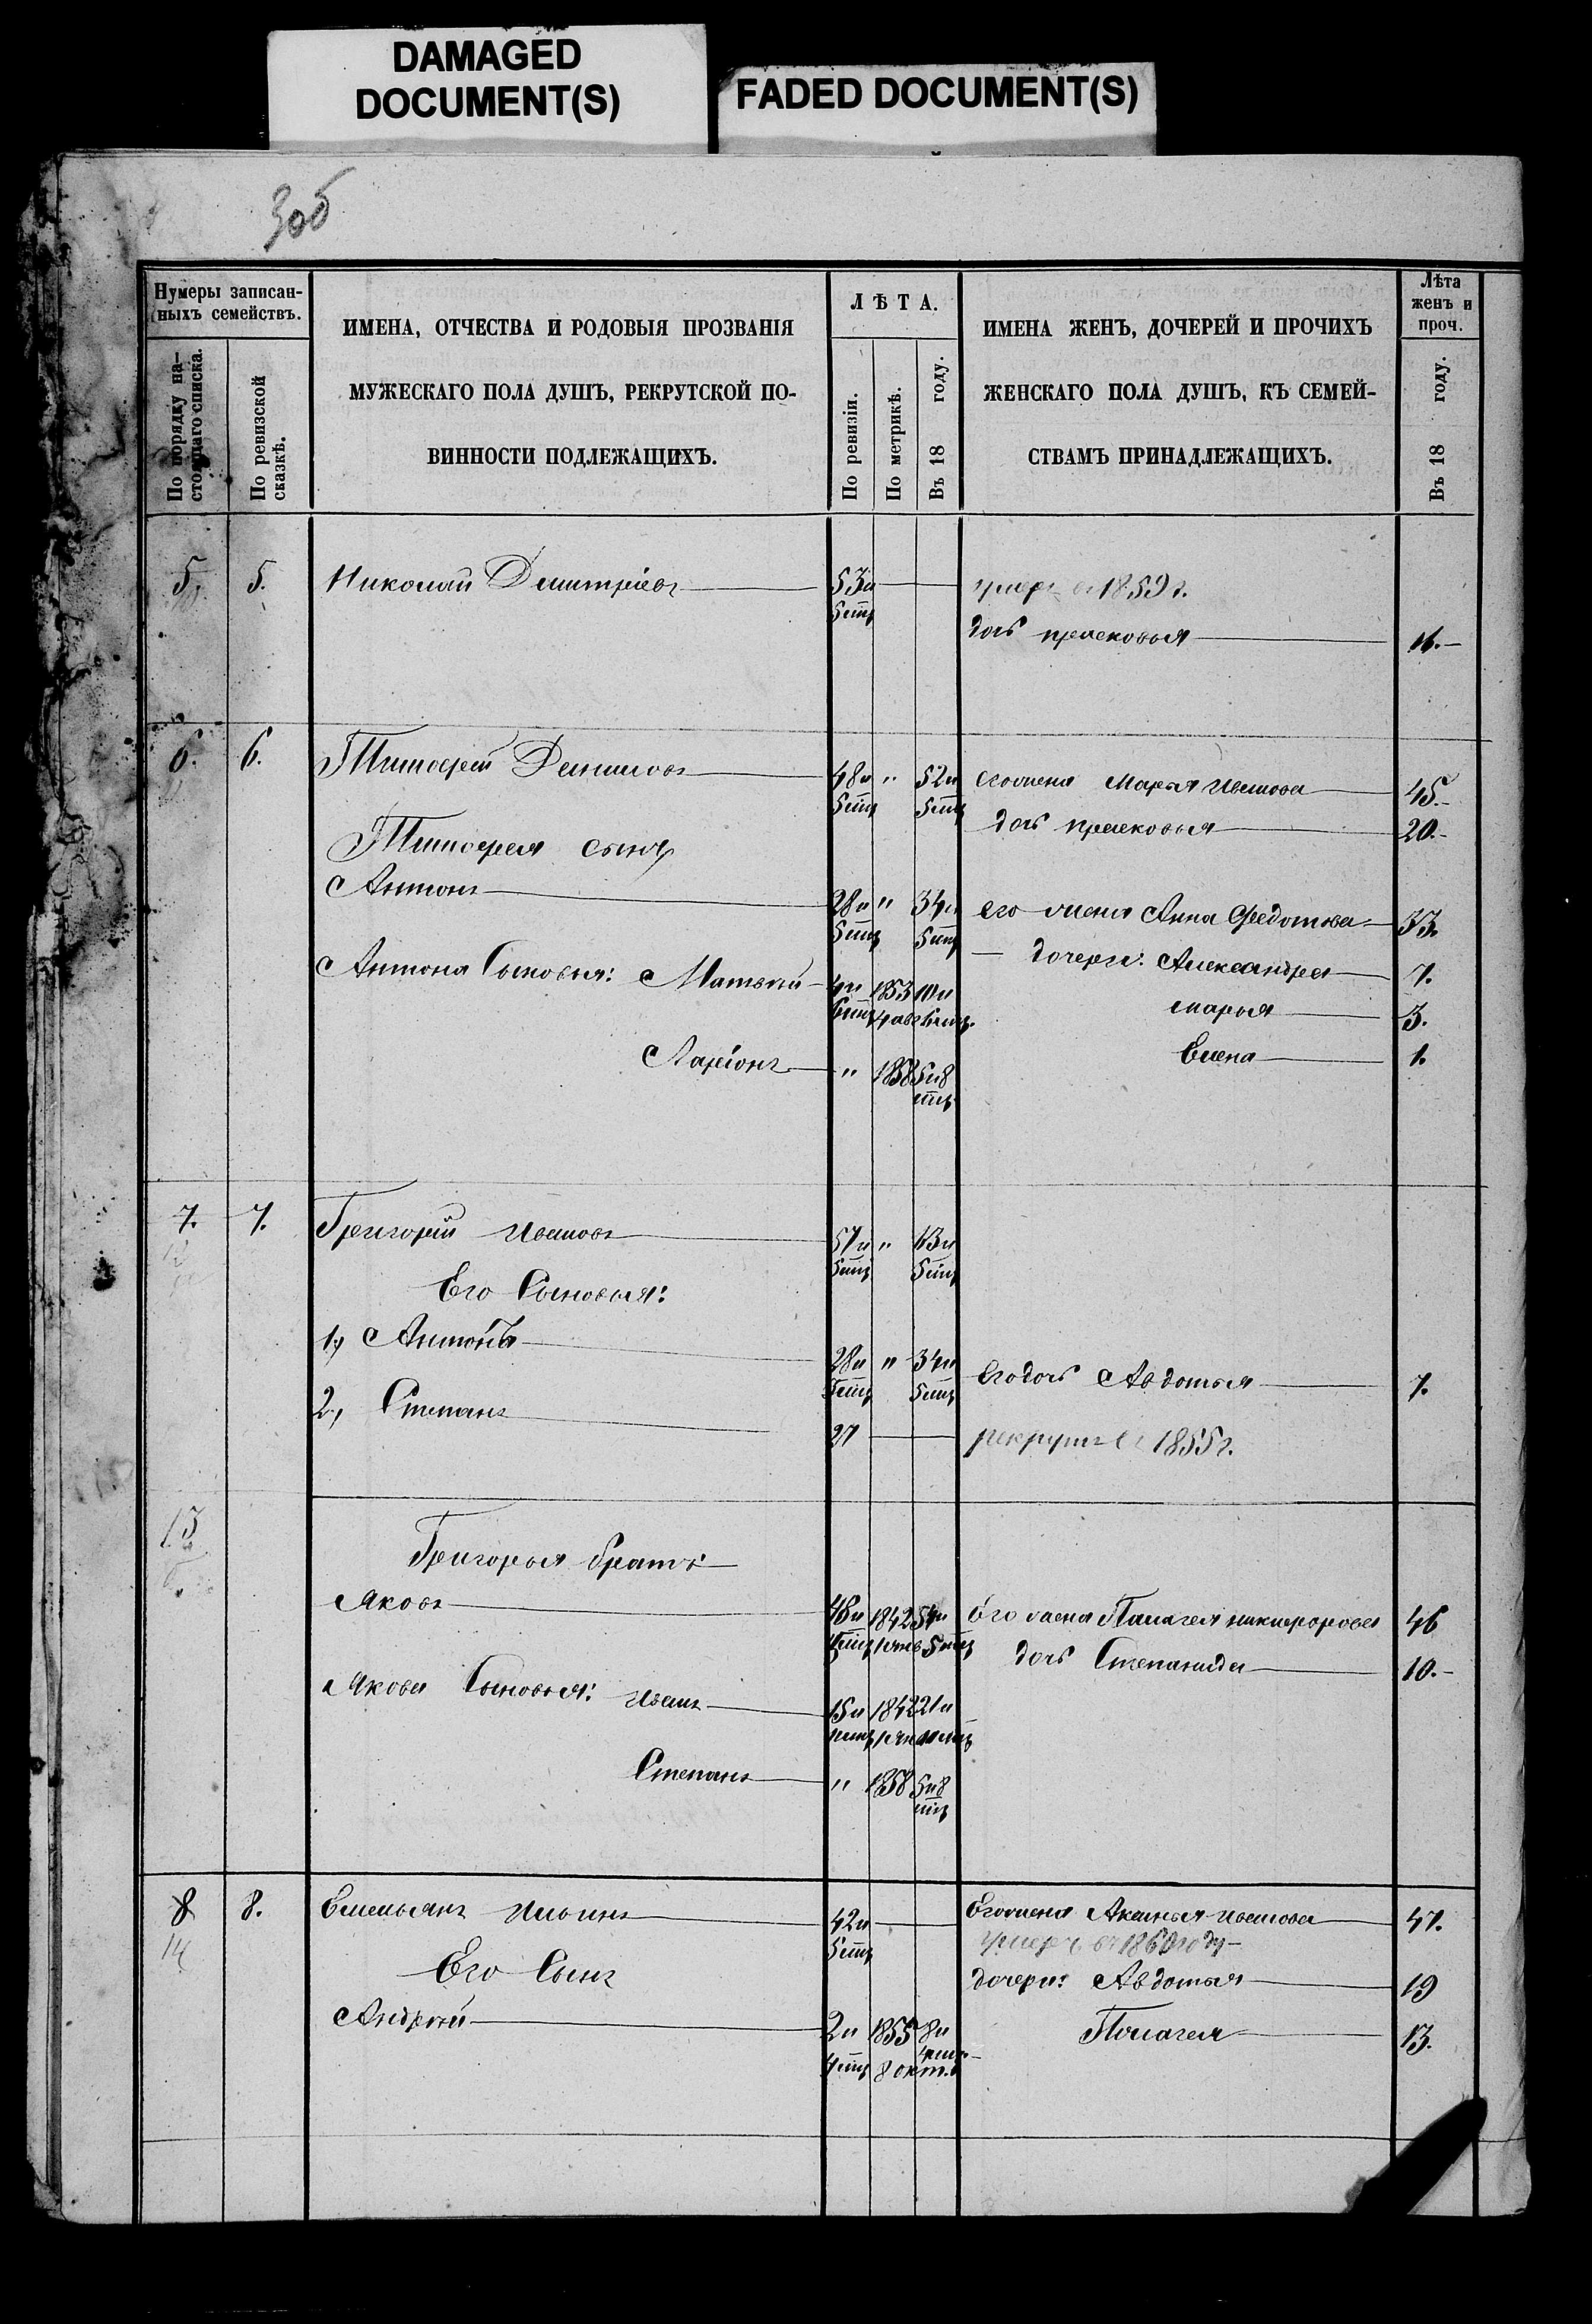 DAMAGED
DOCUMENT(S)
FADED DOCUMENT(S)
306
Нумеры записан-
ныхъ семействъ.
По порядку на-
стоящаго списка.
По ревизской
сказкѣ.
ИМЕНА, ОТЧЕСТВА И РОДОВЫЯ ПРОЗВАНІЯ
МУЖЕСКАГО ПОЛА ДУШЪ, РЕКРУТСКОЙ ПО-
ВИННОСТИ ПОДЛЕЖАЩИХЪ.
ЛѢТА.
По ревизіи.
По метрикѣ.
Въ 18 году.
ИМЕНА ЖЕНЪ, ДОЧЕРЕЙ И ПРОЧИХЪ
ЖЕНСКАГО ПОЛА ДУШЪ, КЪ СЕМЕЙ-
СТВАМЪ ПРИНАДЛЕЖАЩИХЪ.
Лѣта
женъ и
проч.
Въ 18 году.
5. 5. Николай Дмитріевъ 53 и умеръ въ 1859 г.
5 мц
дочь прасковья 16.
6. 6. Тимофей Даниловъ 48 и " 52 и его жена Марья Иванова 45.
5 мц 5 мц дочь прасковья 20.
Тимофея сынъ
Антонъ 28 и " 34 и его жена Анна Федотова 33.
5 мц 5 мц
Антона Сыновья: Матвѣй 4 и 1853 10 и дочери: Александра 7.
4 авг марья 3.
Ларіонъ " 1858 5 и 8 Елена 1.
мц
7. 7. Григорій Ивановъ 57 и " 63 и
5 мц 5 мц
Его Сыновья:
1, Антонъ 28 и " 34 и Его дочь Авдотья 7.
5 мц 5 мц
2, Степанъ 27 рекрутъ въ 1855 г.
13
Григорья братъ
Яковъ 48 и 1842 54 и Его жена Палагея никифорова 46
5 мц дочь Степанида 10.
Якова Сыновья: Иванъ 15 и 1842 21 и
Степанъ " 1858 5 и 8
мц
8 8. Емельянъ Ильинъ 42 и Его жена Аксинья Иванова 47.
14 5 мц умеръ въ 1860 году
Его Сынъ дочери: Авдотья 19
Андрей 2 и 1855 8 и Полагея 13.
8 окт.